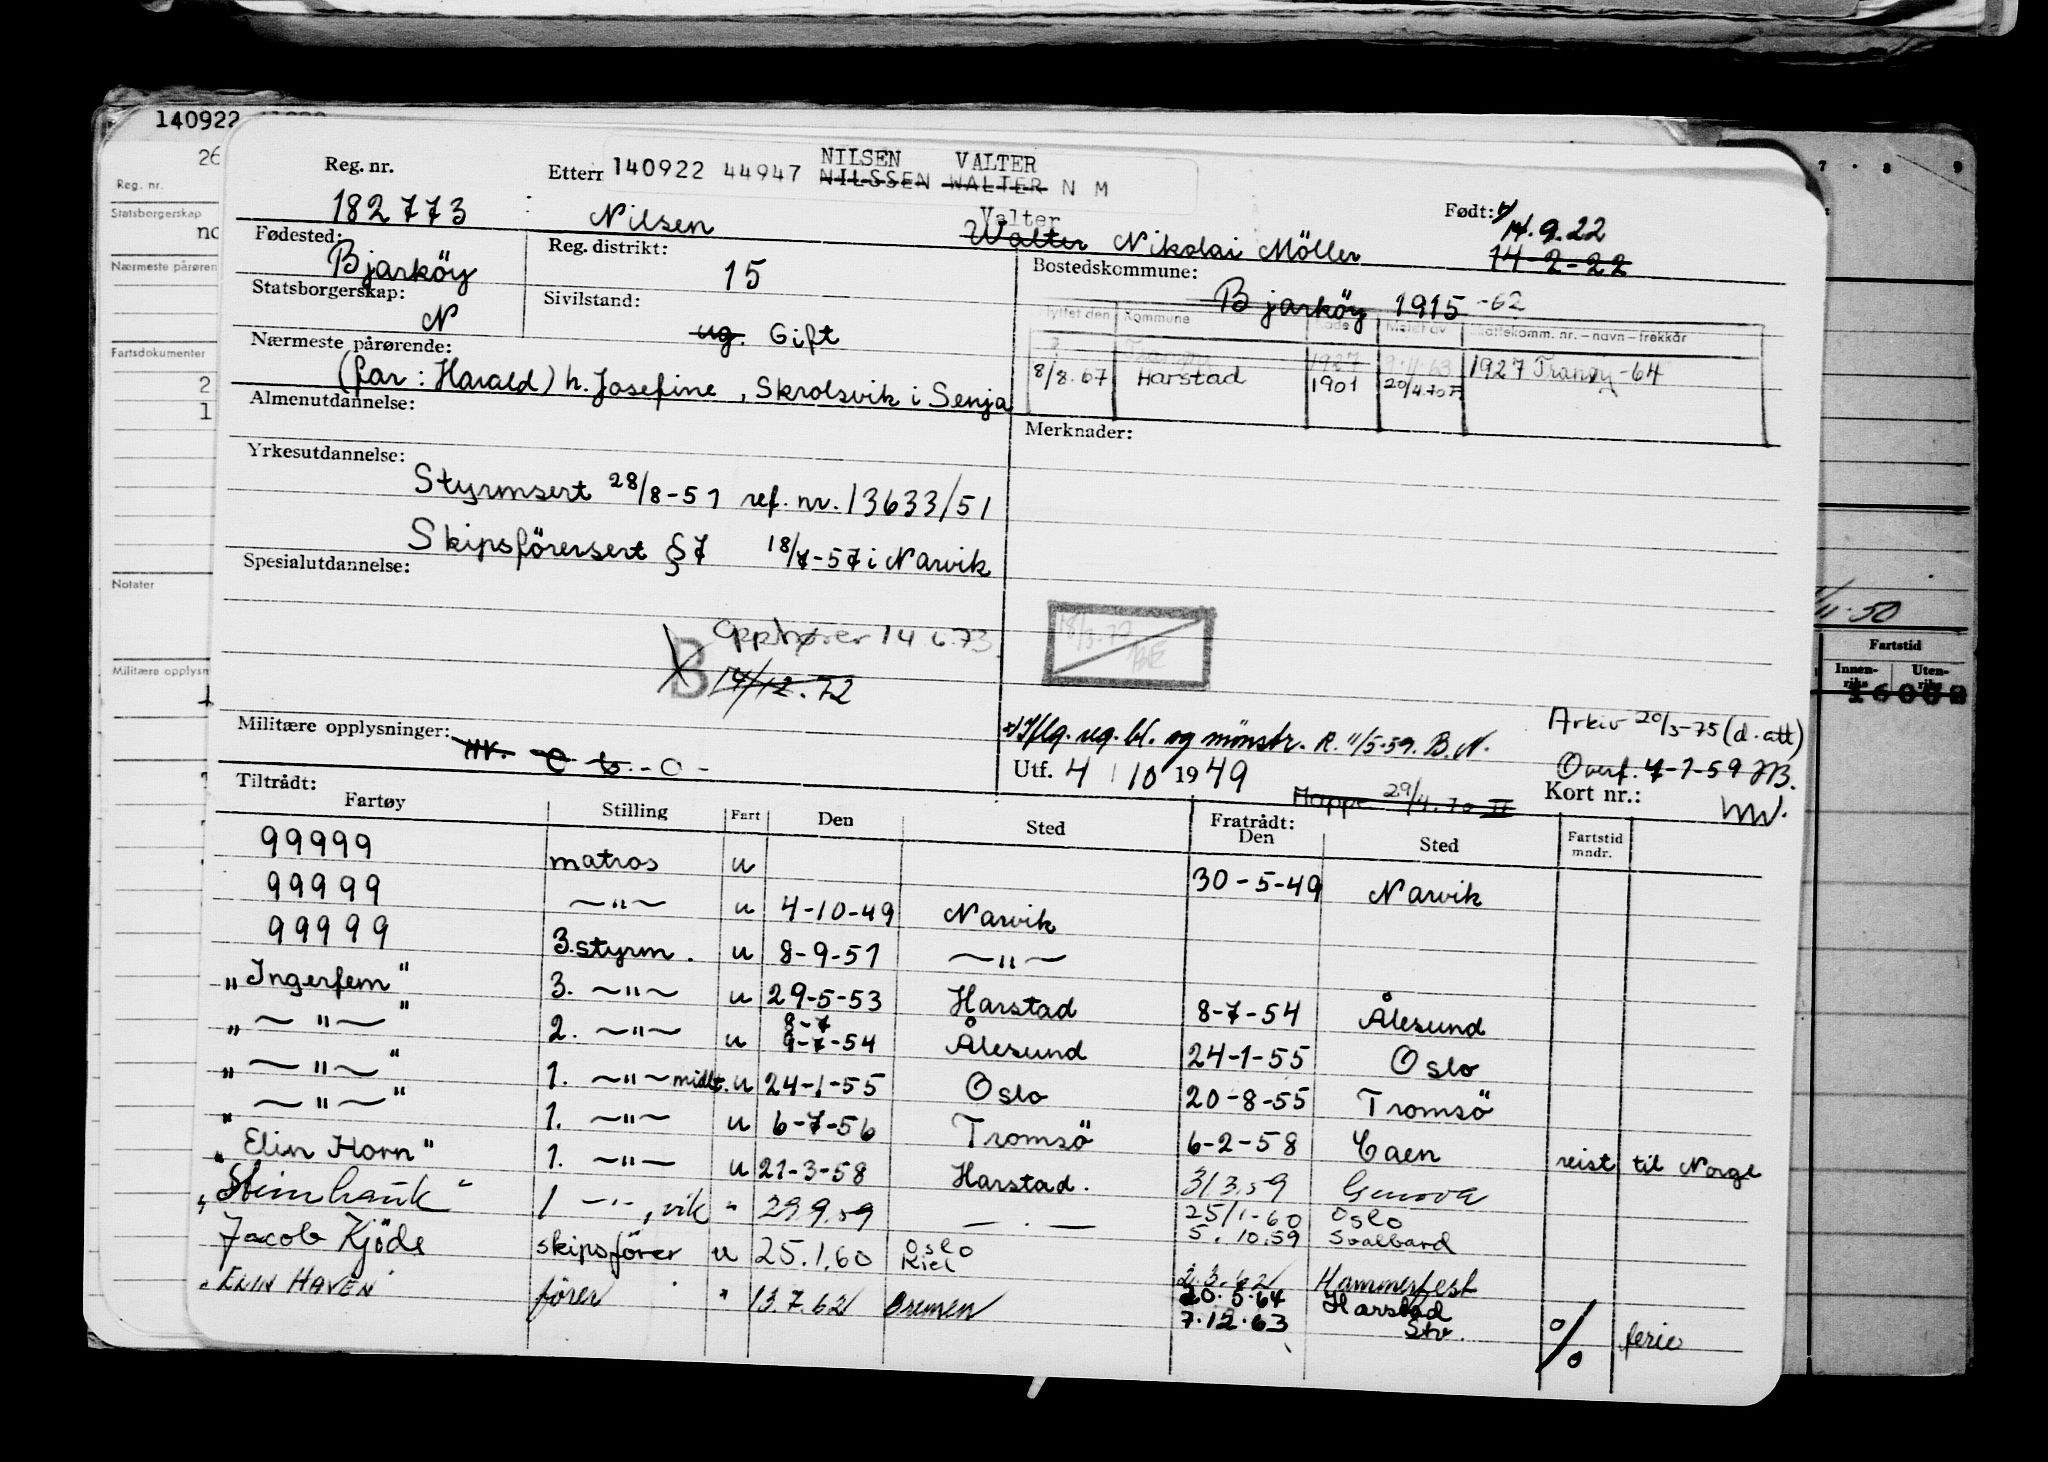 140922
26
Reg. nr.
Statsborgerskap
no
Nærmeste pårøren
Fartsdokumenter
2
1
Notater
Militære opplysn
7 · 8 9
11-50
Fartstid
Innen-riks Uten-riks
Reg. nr. Etterr 140922 44947 NILSEN VALTER
NILSSEN WALTER N M
182773 Nilsen Valter
Walter Nikolai Möller
Født: 14.9.22
14-2-22
Fødested: Bjarköy
Reg. distrikt: 15
Bostedskommune: Bjarköy 1915 -62
Statsborgerskap: N
Sivilstand: ug. Gift
Flyttet den Kommune Kode Meldt av Skattekomm. nr. – navn – trekkår
Tranøy 1927 9.11.63 1927 Tranøy -64
8/8.67 Harstad 1901 20/4.70
Nærmeste pårørende: (far: Harald) h. Josefine, Skrolsvik i Senja
Almenutdannelse:
Merknader:
Yrkesutdannelse:
Styrmsert 28/8-51 ref. nr. 13633/51
Skipsförersert §7 18/7-57 i Narvik
Spesialutdannelse:
opphører 14 6.73
B 14/12.72
Militære opplysninger:
x) Iflg. reg. bl. og mönstr. R. 11/5-59. B.N.
Arkiv 20/3-75 (d. att)
Overf. 7-1-59 JB.
Utf. 4 / 10 1949
Mappe 29/4.70
Kort nr.:
Tiltrådt:
Fartøy Stilling Fart Den Sted Fratrådt: Den Sted Fartstid mndr.
99999 matros u 30-5-49 Narvik
99999 —"— u 4-10-49 Narvik
99999 3.styrm. u 8-9-51 —"—
"Ingerfem" 3. —"— u 29-5-53 Harstad 8-7-54 Ålesund
" —"— " 2. —"— u 8-7
9-7-54 Ålesund 24-1-55 Oslo
" —"— " 1. —"— midlt. u 24-1-55 Oslo 20-8-55 Tromsö
" —"— " 1. —"— u 6-7-56 Tromsö 6-2-58 Caen reist til Norge
"Elin Horn" 1. —"— u 21-3-58 Harstad. 31 3.59 Genova
"Steinhauk" 1 —"—, vik " 29.9.59 — . — 25/1-60 Oslo
5. 10.59 Svalbard
Jacob Kjöde skipsförer u 25.1.60 Oslo
Kiel 2.3.62 Hammerfest
"ELIN HAVEN" förer " 13.7.62 Bremen 20.5.64 Harstad
7.12.63 Stv. o/o ferie